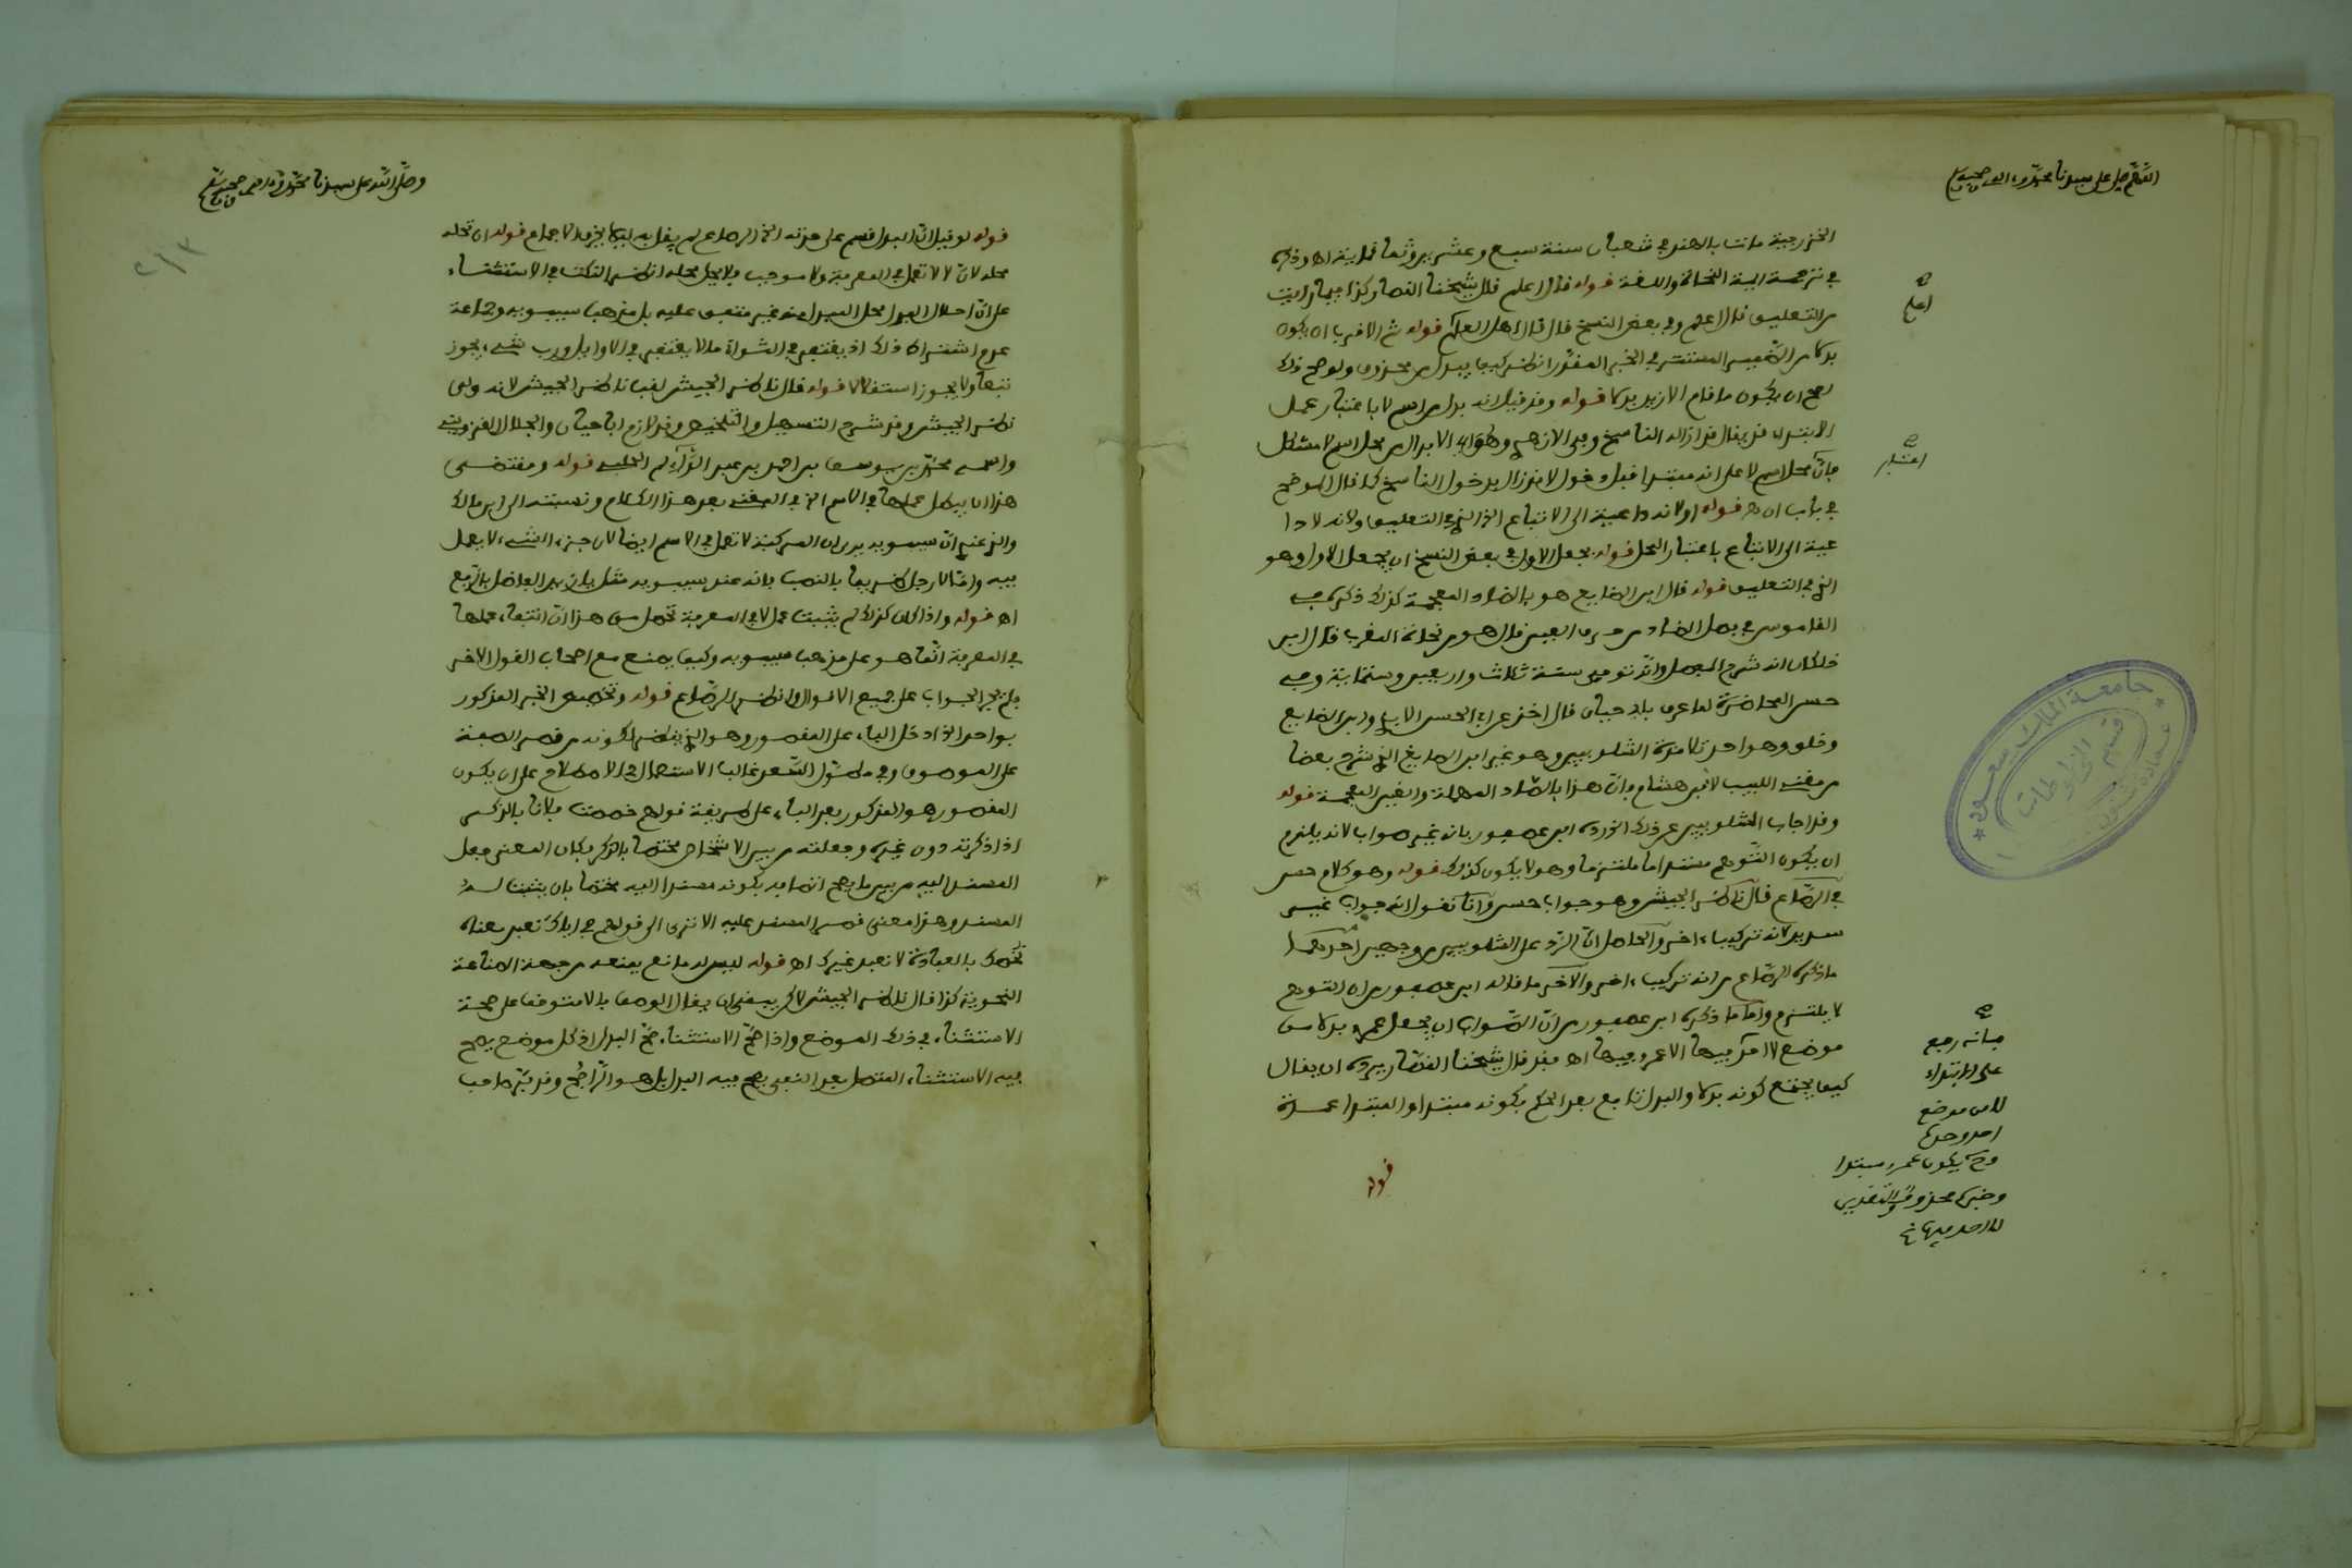 اللهم صل على سيدنا محمد وءاله وصحبه
الخزرجية مات بالهند في شعبان سنة سبع وعشرين وثمانماية اه وذكره
في ترجمة ايمة النحاة واللغة قوله قال اعلم قال شيخنا القصار كذا فيما رايت
من التعليق قال اعلم وفي بعض النسخ قال قال اهل العلم قوله ثم الاقرب ان يكون
بدلا من الضمير المستتر في الخبر المقدر انظر كيف يبدل من محذوف ولو صح ذلك
لصح ان يكون ما قام الا زيد بدلا قوله وقد قيل انه بدل من اسم لا باعتبار عمل
الابتداء قد يقال قد ازاله الناسخ وفي الازهري وقوله الابدال من محل اسم لا مشكل
فان محل اسم لا على انه مبتدا قبل دخول لا فزال بدخول الناسخ كما قال الموضح
في باب ان اه قوله اولا داعية الى الاتباع الذي في التعليق ولانه لا دا
عية الى الاتباع باعتبار المحل قوله بجعل الاول في بعض النسخ ان يجعل الاول وهو
الذي في التعليق قوله قال ابن الضايع هو بالضاد المعجمة كذلك ذكره في
القاموس في فصل الضاد من حرف العين قال هو من نحاة المغرب قال ابن
خلكان انه شرح المفصل وانه توفي سنة ثلاث واربعين وستماية وفي
حسن المحاضرة لما عرف بابي حيان قال اخذ عن ابي الحسن الابدي وابن الضايع
وخلق وهو احد تلامذة الشلوبين وهو غير ابن الصايغ الذي شرح بعضا
من مغني اللبيب لابن هشام فان هذا بالصاد المهملة والغين المعجمة قوله
وقد اجاب الشلوبين عن ذلك الخ رده ابن عصفور بانه غير صواب لانه يلزم
ان يكون التوهم مستداما ملتزما وهو لا يكون كذلك قوله وهو كلام حسن
في الرصاع قال ناظر الجيش وهو جواب حسن وانا نقول انه جواب غير
سديد لانه تركيب ءاخر والحاصل ان الرد على الشلوبين من وجهين احدهما
ما ذكره الرصاع من انه تركيب ءاخر والاخر ما قاله ابن عصفور من ان التوهم
لا يلتزم واما ما ذكره ابن عصفور من ان الصواب ان يجعل عمرو بدلا من
موضع لا احد فيها الا عمرو فيها اه فقد قال شيخنا القصار يرده ان يقال
كيف يجتمع كونه بدلا والبدل تابع بعد الحكم بكونه مبتدا والمبتدا عمدة
قوله
اعلم
اعتبار
فانه رفع
على الابتداء
لا من موضع
احد وحدها
وح يكون عمرو مبتدا
وخبره محذوف والتقدير
لا احد فيها
جامعة الملك سعود
قسم المخطوطات
وصلى الله على سيدنا محمد وءاله وصحبه وسلم
٢١٣
قوله لو قيل ان البدل قسم على حدته الخ الرصاع لم يقل به ليلا يخرق الاجماع قوله ان تحله
محله لان لا لا تعمل في المعرفة ولا موجب ولا يحل محله انظر النكت في الاستثناء
على ان احلال البدل محل المبدل منه غير متفق عليه بل مذهب سيبويه وجماعة
عدم اشتراط ذلك اذ يغتفر في الثواني ما لا يغتفر في الاوايل ورب شيء يجوز
تبعا ولا يجوز استقلالا قوله قال ناظر الجيش لقب ناظر الجيش لانه ولي
نظر الجيش وقد شرح التسهيل والتلخيص وقد لازم ابا حيان والجلال القزويني
واسمه محمد بن يوسف بن احمد بن عبد الدائم الحلبي قوله ومقتضى
هذا ان يبطل عملها في الاسم الخ في المغني بعد هذا الكلام ونسبته الى ابن مالك
والذي عندي ان سيبويه يرى ان المركبة لا تعمل في الاسم ايضا لان جزء الشيء لا يعمل
فيه واما لا رجل ظريفا بالنصب فانه عند سيبويه مثل يا زيد الفاضل بالرفع
اه قوله واذا كان كذلك لم يثبت عمل لا في المعرفة تحصل من هذا ان انتفاء عملها
في المعرفة انما هو على مذهب سيبويه وكيف يمنع مع اصحاب القول الاخر
فلم يجر الجواب على جميع الاقوال وانظر الرصاع قوله وتخصيص الخبر المذكور
بواحد الخ ادخل الباء على المقصور وهو الذي ينظر لكونه من قصر الصفة
على الموصوف وفي مطول السعد غالب الاستعمال في الاصطلاح على ان يكون
المقصور هو المذكور بعد الباء على طريقة قولهم خصصت فلانا بالذكر
اذا ذكرته دون غيره وجعلته من بين الاشخاص مختصا بالذكر فكان المعنى جعل
المسند اليه من بين ما يصح اتصافه بكونه مسندا اليه مختصا بان يثبت له
المسند وهذا معنى قصر المسند عليه الا ترى الى قولهم في اياك نعبد معناه
نخصك بالعبادة لا نعبد غيرك اه قوله ليس له مانع يمنعه من جهة الصناعة
النحوية كذا قال ناظر الجيش لاكن ينبغي ان يقال الوصف بالا متوقف على صحة
الاستثناء في ذلك الموضع واذا صح الاستثناء صح البدل اذ كل موضع يصح
فيه الاستثناء المتصل بعد النفي يصح فيه البدل بل هو الراجح وقد بين صاحب